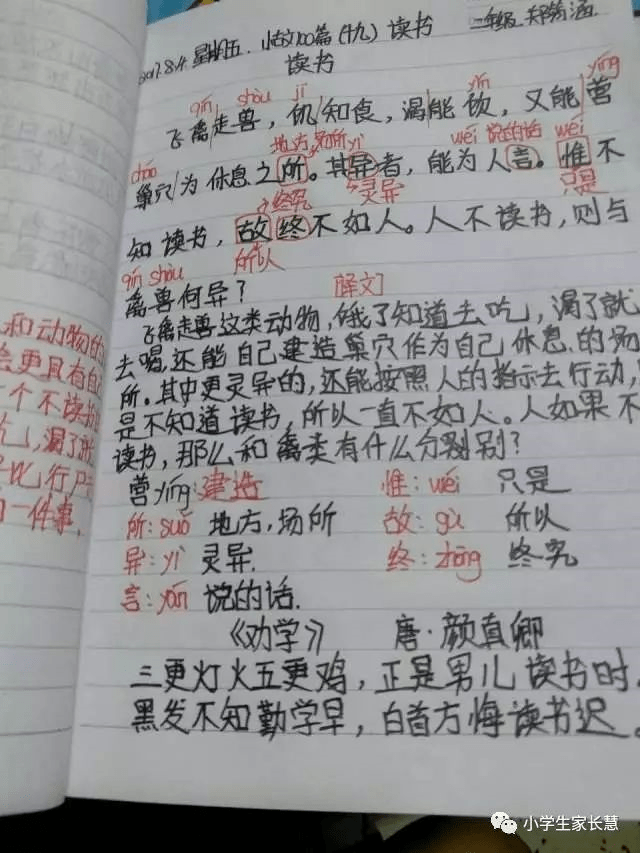 2017.8.4. 星期五. 小古文100篇(十九) 读书 二年级 郑
读书
qín shòu jī yǐn yíng
飞禽走兽，饥知食，渴能饮，又能营
cháo 地方,场所 yì wéi 说的话 wéi
巢穴为休息之所。其异者，能为人言。惟不
→终究 灵异 只是
知读书，故终不如人。人不读书，则与
qín shòu 所以
禽兽何异？ [译文]
飞禽走兽这类动物，饿了知道去吃，渴了就
去喝，还能自己建造巢穴作为自己休息的场
所。其中更灵异的，还能按照人的指示去行动，
是不知道读书，所以一直不如人。人如果不
读书，那么和禽类有什么分别别？
营yíng:建造 惟:wéi 只是
所:suǒ 地方,场所 故:gù 所以
异:yì 灵异. 终:zhōng 终究
言:yán 说的话.
《劝学》 唐·颜真卿
三更灯火五更鸡，正是男儿读书时.
黑发不知勤学早，白首方悔读书迟。
和动物的
会更具有自
个不读书
吃,渴了就
比,行尸
一件事.
小学生家长慧